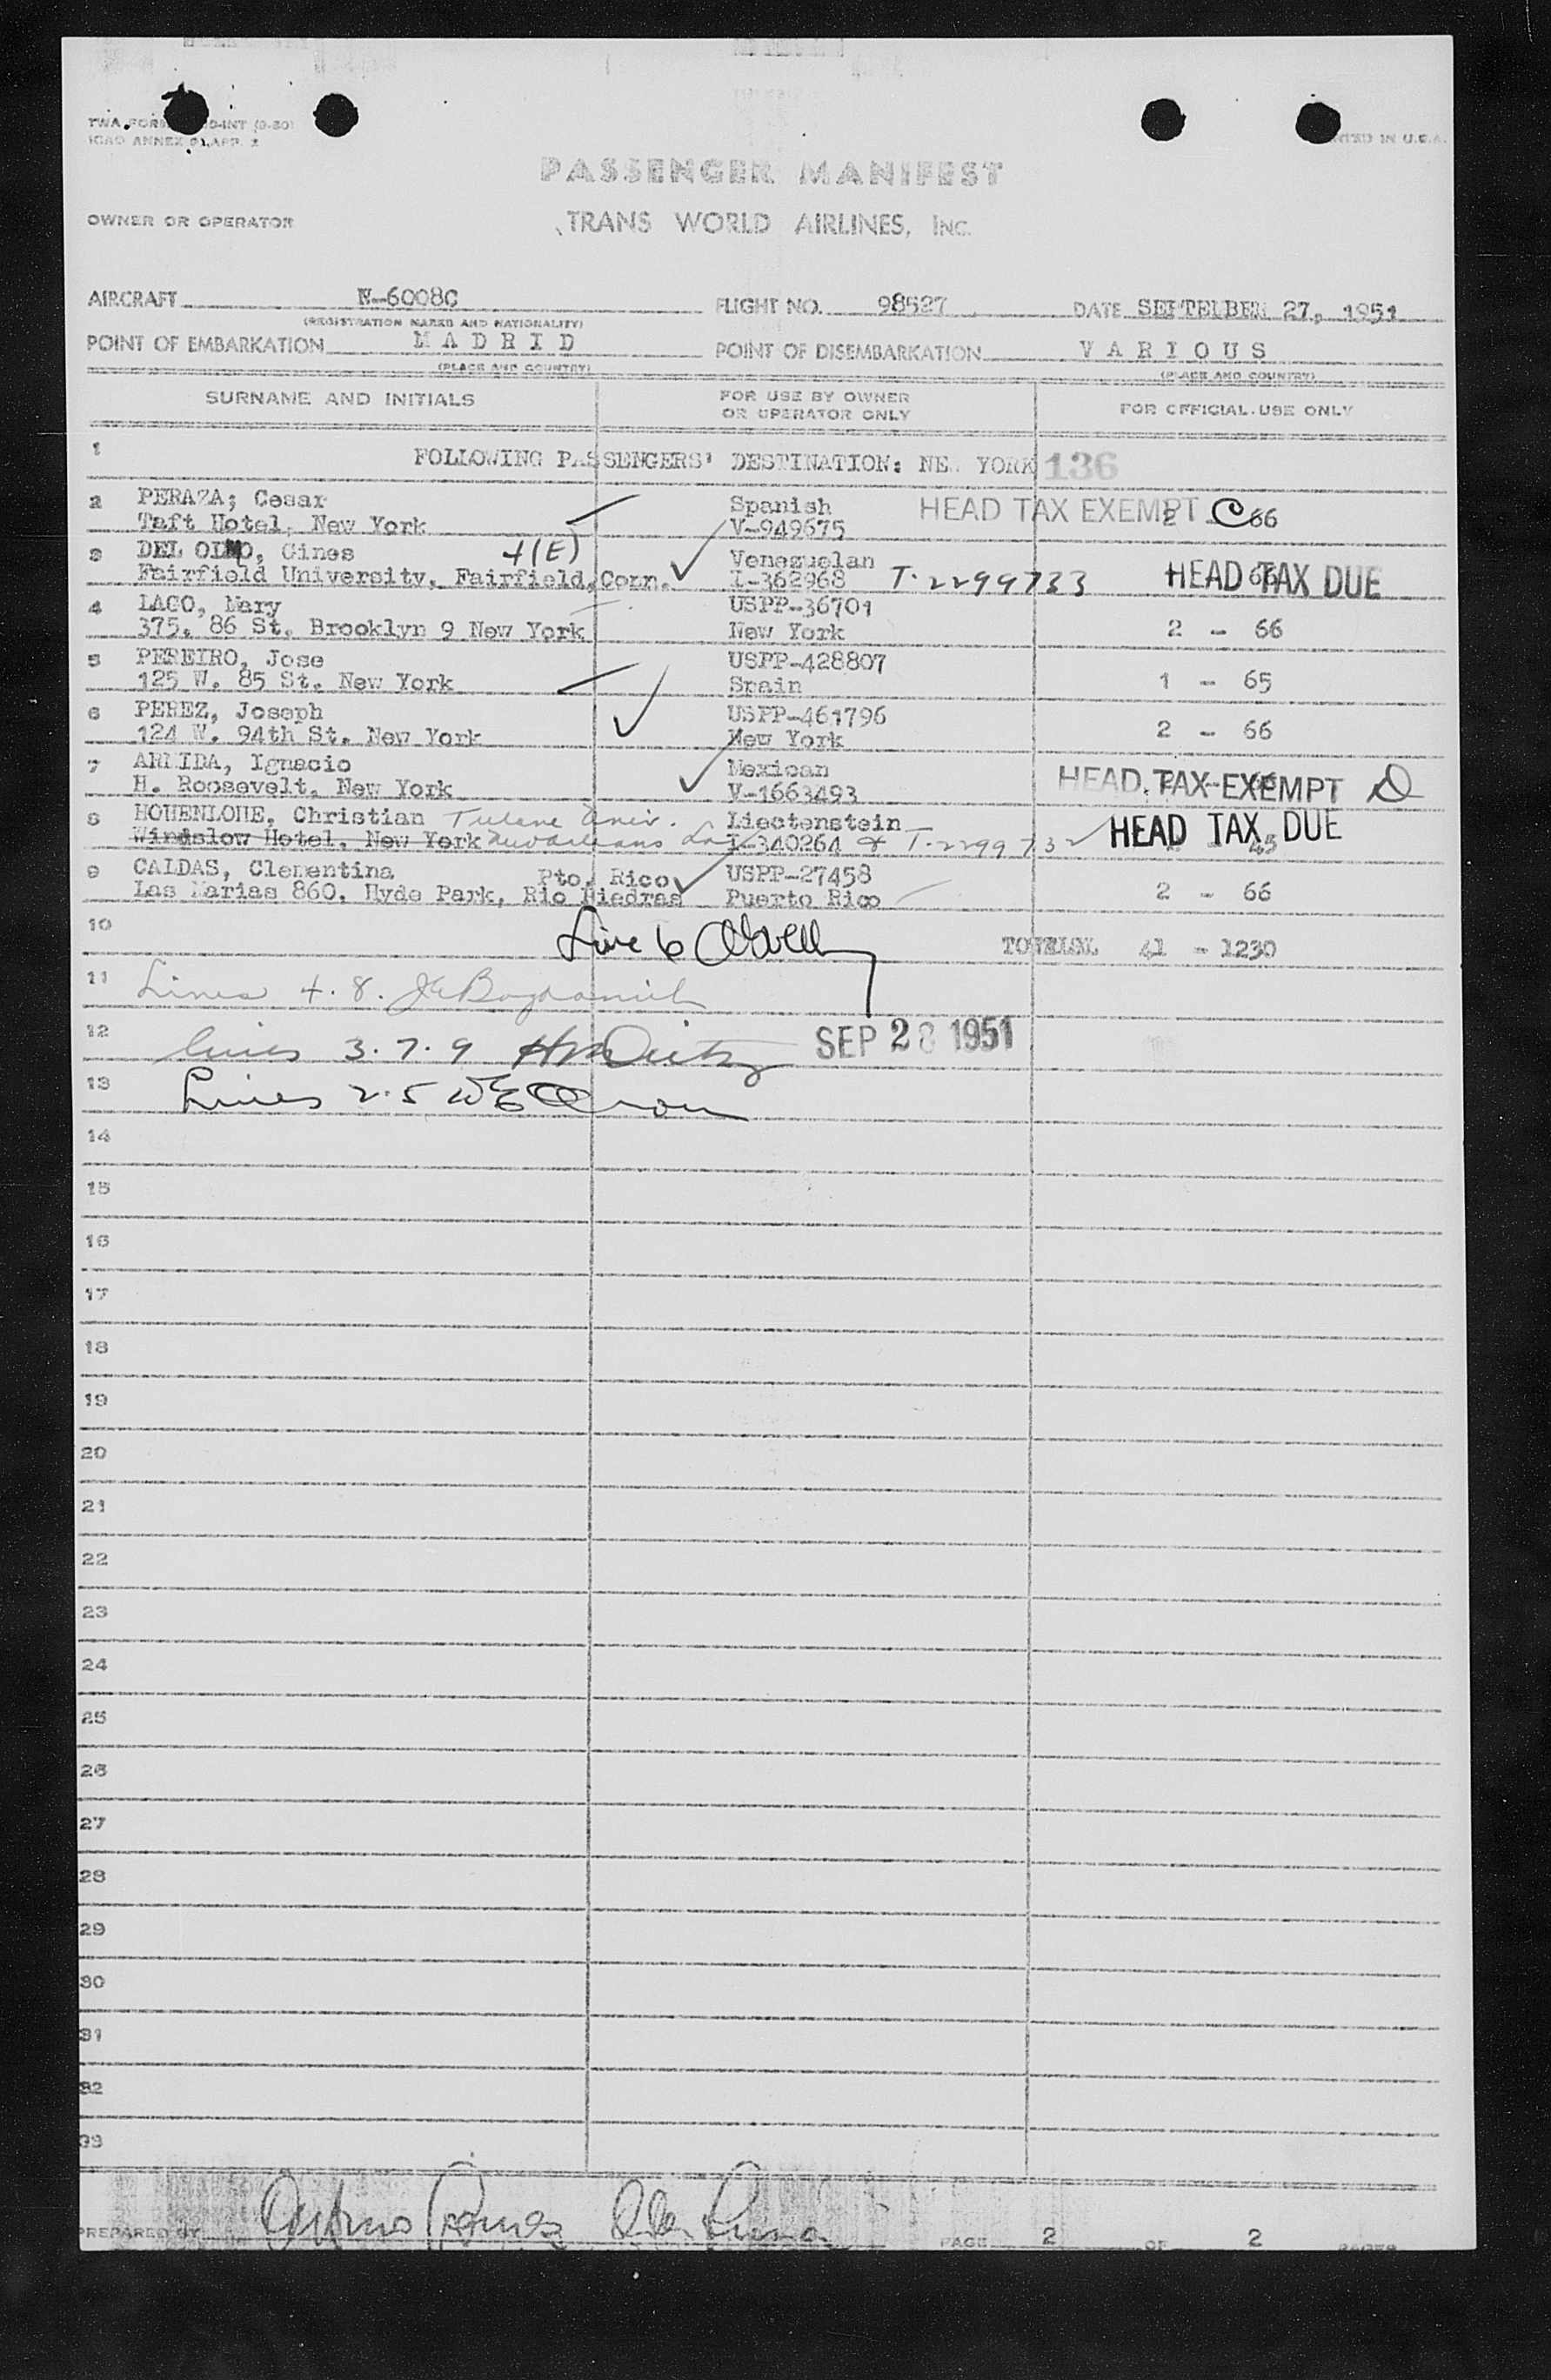 ICAO ANNEX 9, APP. 2
PASSENGER MANIFEST
OWNER OR OPERATOR TRANS WORLD AIRLINES, INC.
AIRCRAFT N-6008C FLIGHT NO. 98527 DATE SEPTEMBER 27, 1951
(REGISTRATION MARKS AND NATIONALITY)
POINT OF EMBARKATION MADRID POINT OF DISEMBARKATION VARIOUS
(PLACE AND COUNTRY) (PLACE AND COUNTRY)
SURNAME AND INITIALS FOR USE BY OWNER OR OPERATOR ONLY FOR OFFICIAL USE ONLY
1 FOLLOWING PASSENGERS' DESTINATION: NEW YORK 136
2 PERAZA; Cesar Spanish HEAD TAX EXEMPT C 2 66
Taft Hotel, New York V-949675
3 DEL OLMO, Gines +(E) Venezuelan
Fairfield University, Fairfield, Conn. I-362968 T-2299733 HEAD TAX DUE 66
4 LAGO, Mary USPP-36701
375, 86 St. Brooklyn 9 New York New York 2 - 66
5 PEREIRO, Jose USPP-428807
125 W. 85 St. New York Spain 1 - 65
6 PEREZ, Joseph USPP-461796
124 W. 94th St. New York New York 2 - 66
7 Ignacio Mexican HEAD TAX EXEMPT D
H. Roosevelt, New York V-1663493
8 HOHENLOHE, Christian Tulane Univ. Liectenstein HEAD TAX DUE 45
Windslow Hotel, New York New Orleans La I-340264 T-2299732
9 CALDAS, Clementina Pto. Rico USPP-27458
Las Marias 860, Hyde Park, Rio Piedras Puerto Rico 2 - 66
10 Line 6 41 - 1230
11 Lines 4. 8.
12 Lines 3. 7. 9 SEP 28 1951
13 Lines 2. 5
14
15
16
17
18
19
20
21
22
23
24
25
26
27
28
29
30
31
32
33
PREPARED BY PAGE 2 OF 2 PAGES